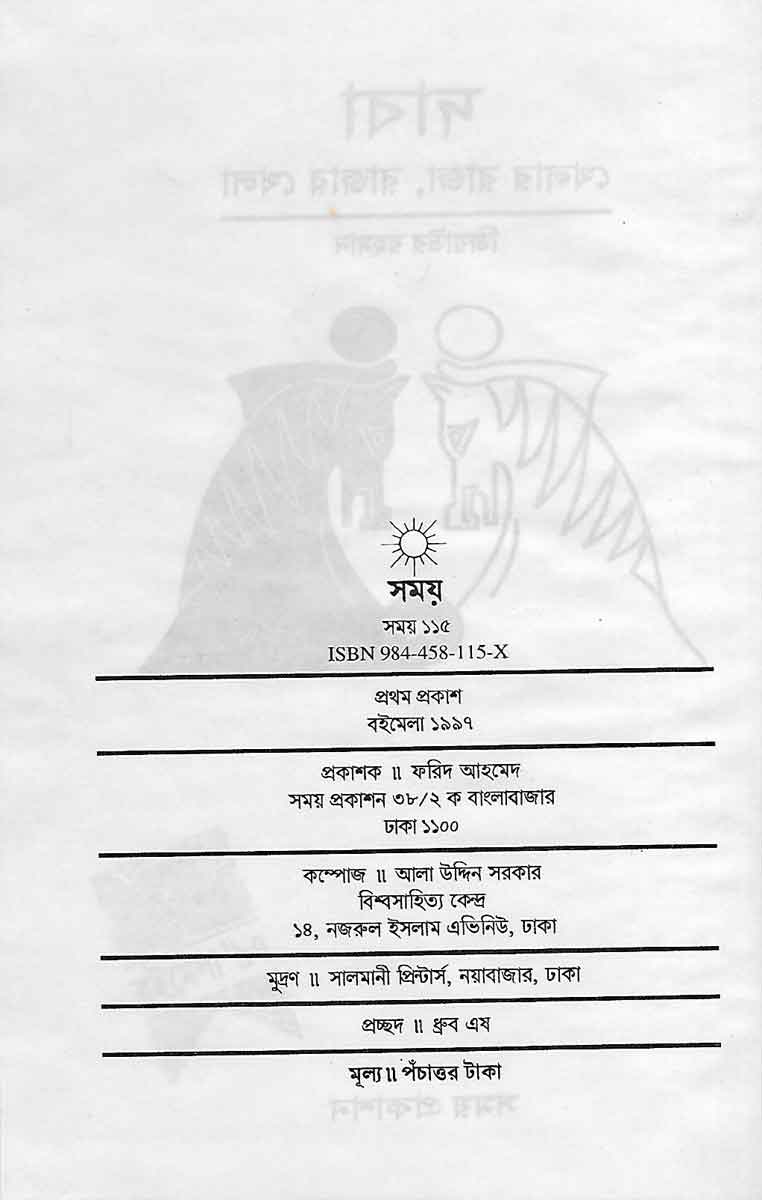 সময়
সময় ১১৫
ISBN 984-458-115-X
প্রথম প্রকাশ
বইমেলা ১৯৯৭
প্রকাশক ॥ ফরিদ আহমেদ
সময় প্রকাশন ৩৮/২ ক বাংলাবাজার
ঢাকা ১১০০
কম্পোজ ॥ আলা উদ্দিন সরকার
বিশ্বসাহিত্য কেন্দ্র
১৪, নজরুল ইসলাম এভিনিউ, ঢাকা
মুদ্রণ ॥ সালমানী প্রিন্টার্স, নয়াবাজার, ঢাকা
প্রচ্ছদ ॥ ধ্রুব এষ
মূল্য ॥ পঁচাত্তর টাকা